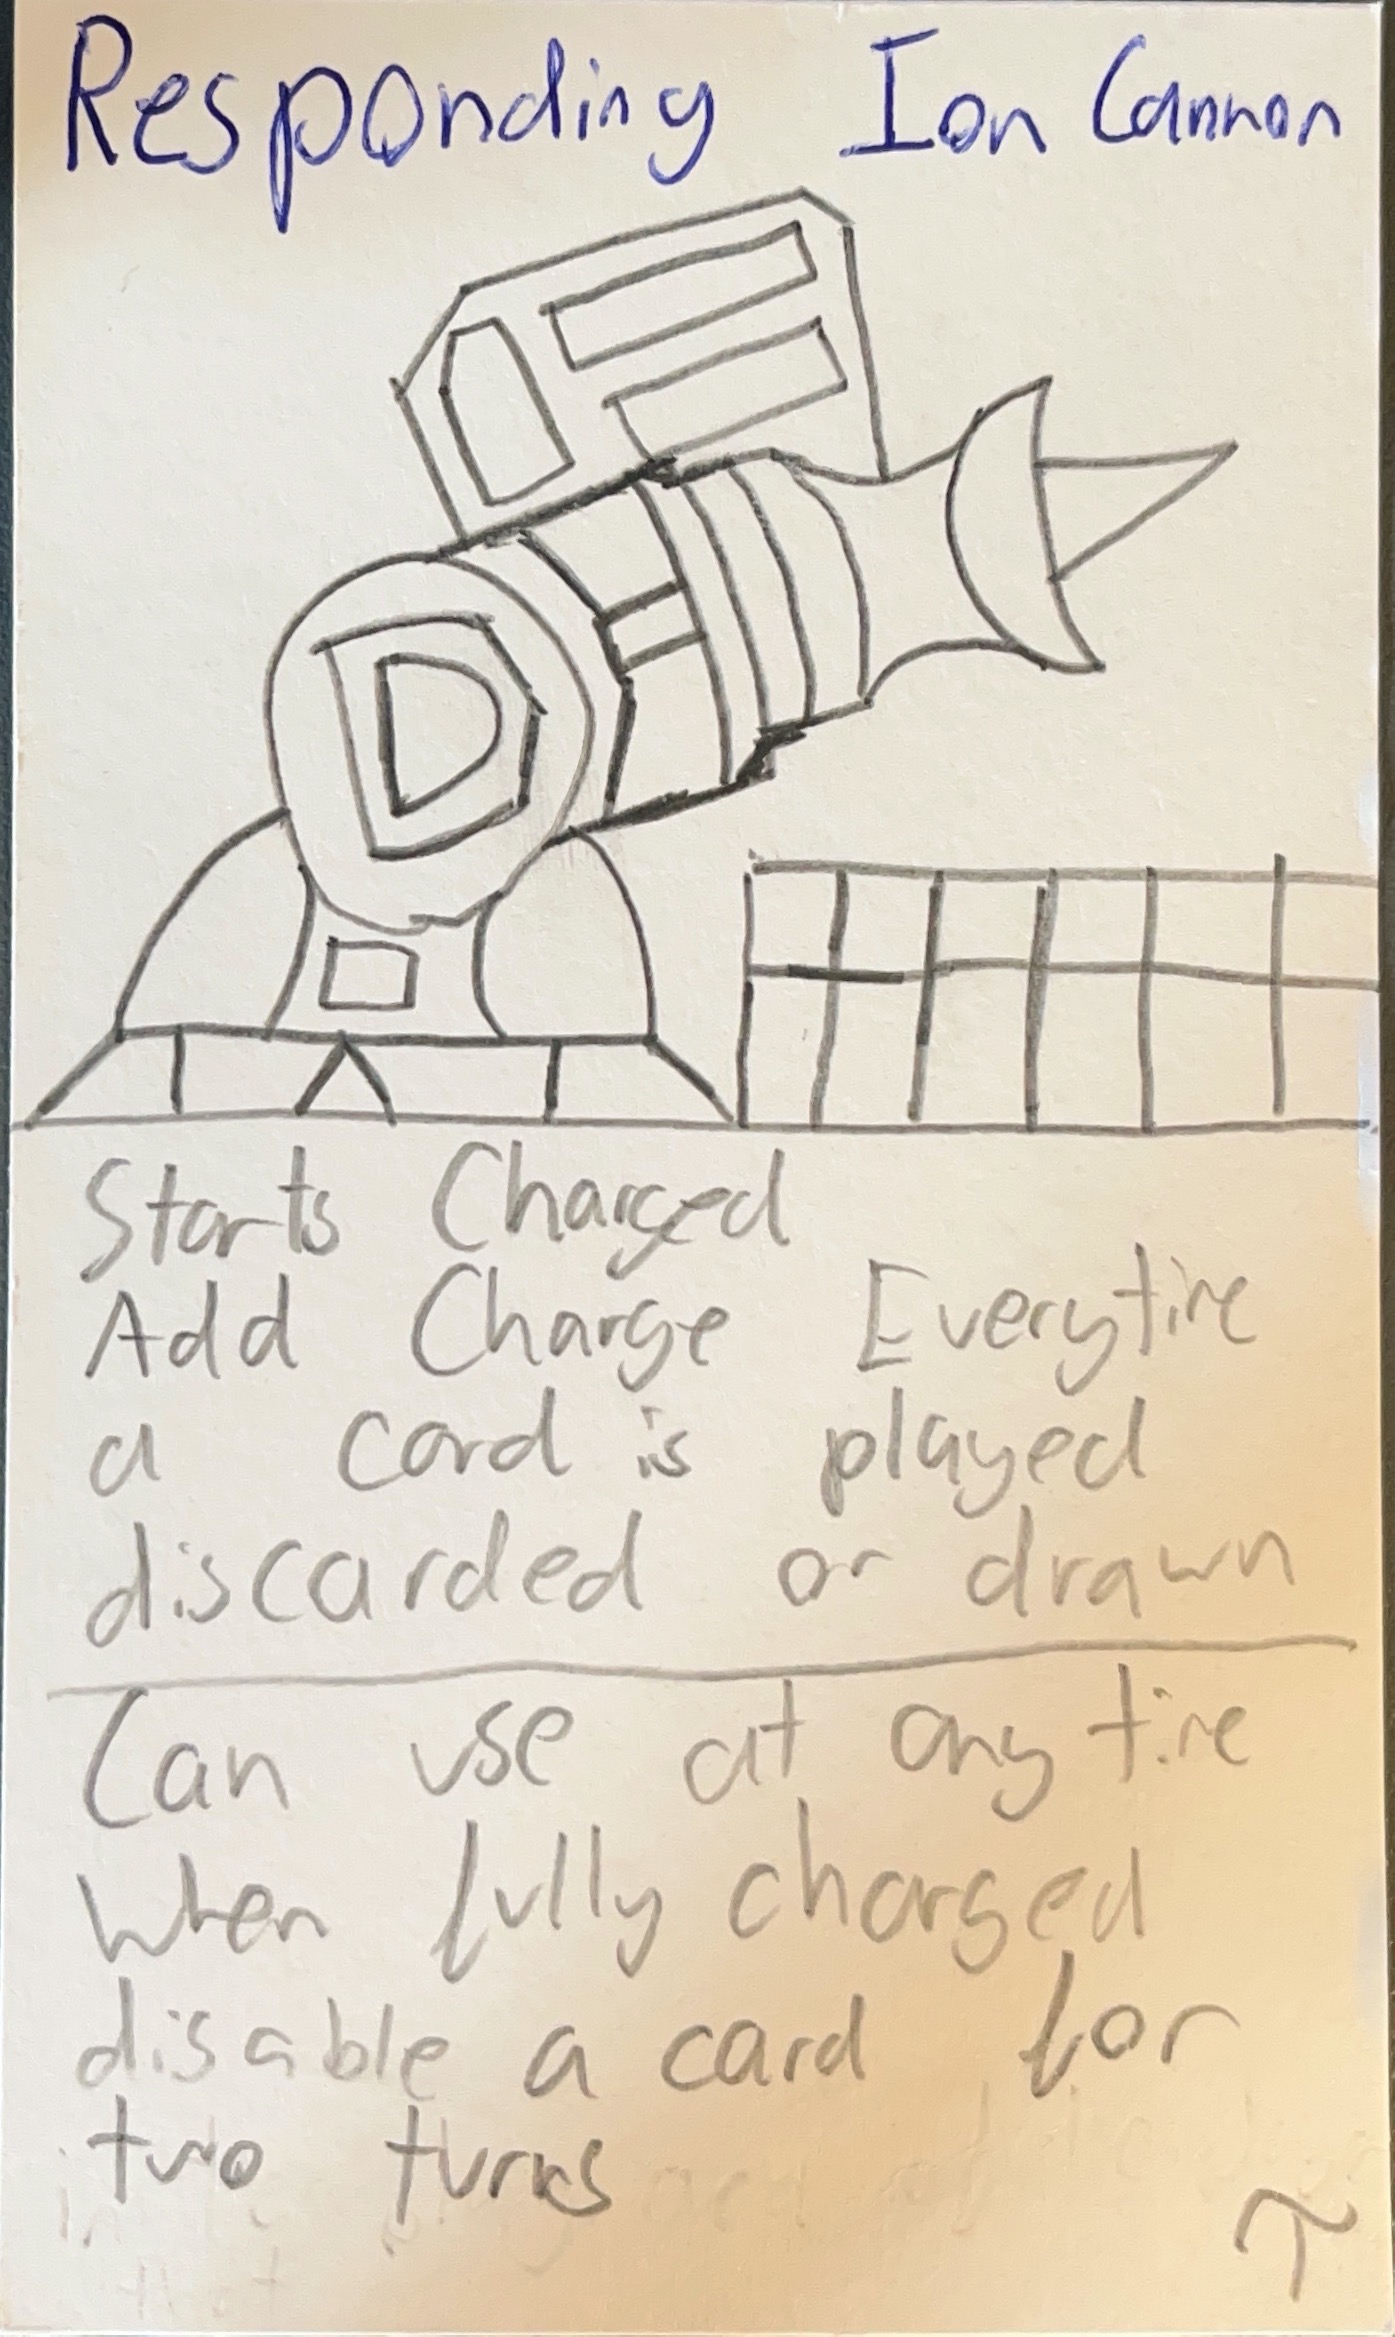 Responding Ion Cannon
Starts Charged
Add Charge Everytime
a card is played
discarded or drawn
Can use at any time
when fully charged
disable a card for
two turns
T